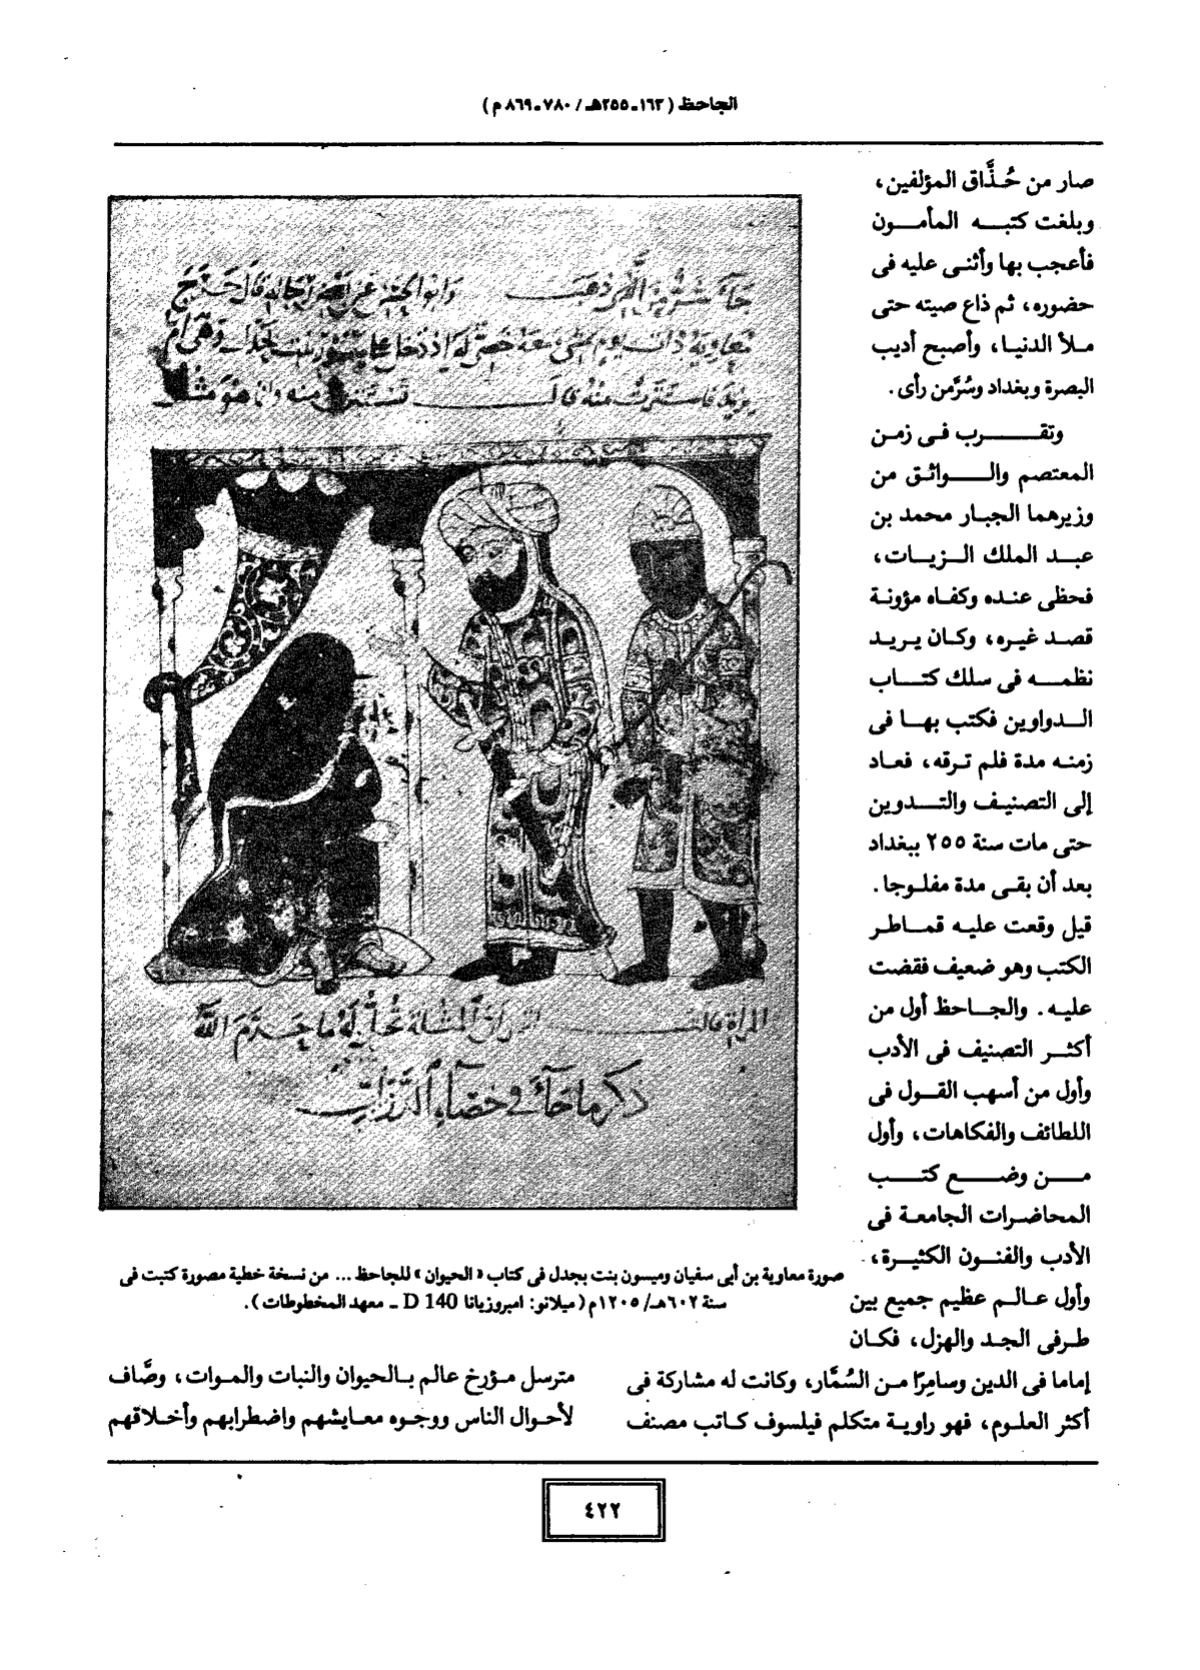 الجاحظ (١٦٣ـ٢٥٥هـ/ ٧٨٠ـ٨٦٩م)
صار من حُذَّاق المؤلفين،
وبلغت كتبه المأمون
فأعجب بها وأثنى عليه فى
حضوره، ثم ذاع صيته حتى
ملأ الدنيا، وأصبح أديب
البصرة وبغداد وسُرَّمن رأى.
وتقرب فى زمن
المعتصم والواثق من
وزيرهما الجبار محمد بن
عبد الملك الزيات،
فحظى عنده وكفاه مؤونة
قصد غيره، وكان يريد
نظمه فى سلك كتاب
الدواوين فكتب بها فى
زمنه مدة فلم ترقه، فعاد
إلى التصنيف والتدوين
حتى مات سنة ٢٥٥ ببغداد
بعد أن بقى مدة مفلوجا.
قيل وقعت عليه قماطر
الكتب وهو ضعيف فقضت
عليه. والجاحظ أول من
أكثر التصنيف فى الأدب
وأول من أسهب القول فى
اللطائف والفكاهات، وأول
من وضع كتب
المحاضرات الجامعة فى
الأدب والفنون الكثيرة،
وأول عالم عظيم جميع بين
طرفى الجد والهزل، فكان
إماما فى الدين وسامِرًا من السُمَّار، وكانت له مشاركة فى
أكثر العلوم، فهو راوية متكلم فيلسوف كاتب مصنف
مترسل مؤرخ عالم بالحيوان والنبات والموات، وصَّاف
لأحوال الناس ووجوه معايشهم واضطرابهم وأخلاقهم
قال خرج
معاوية ذات يوم
المرأة قالت
المثلة
ما حرم الله
ذكر ما جاء فى خصاء
صورة معاوية بن أبى سفيان وميسون بنت بجدل فى كتاب «الحيوان» للجاحظ ... من نسخة خطية مصورة كتبت فى
سنة ٦٠٢هـ/ ١٢٠٥م (ميلانو: امبروزيانا D 140 ـ معهد المخطوطات).
٤٢٢